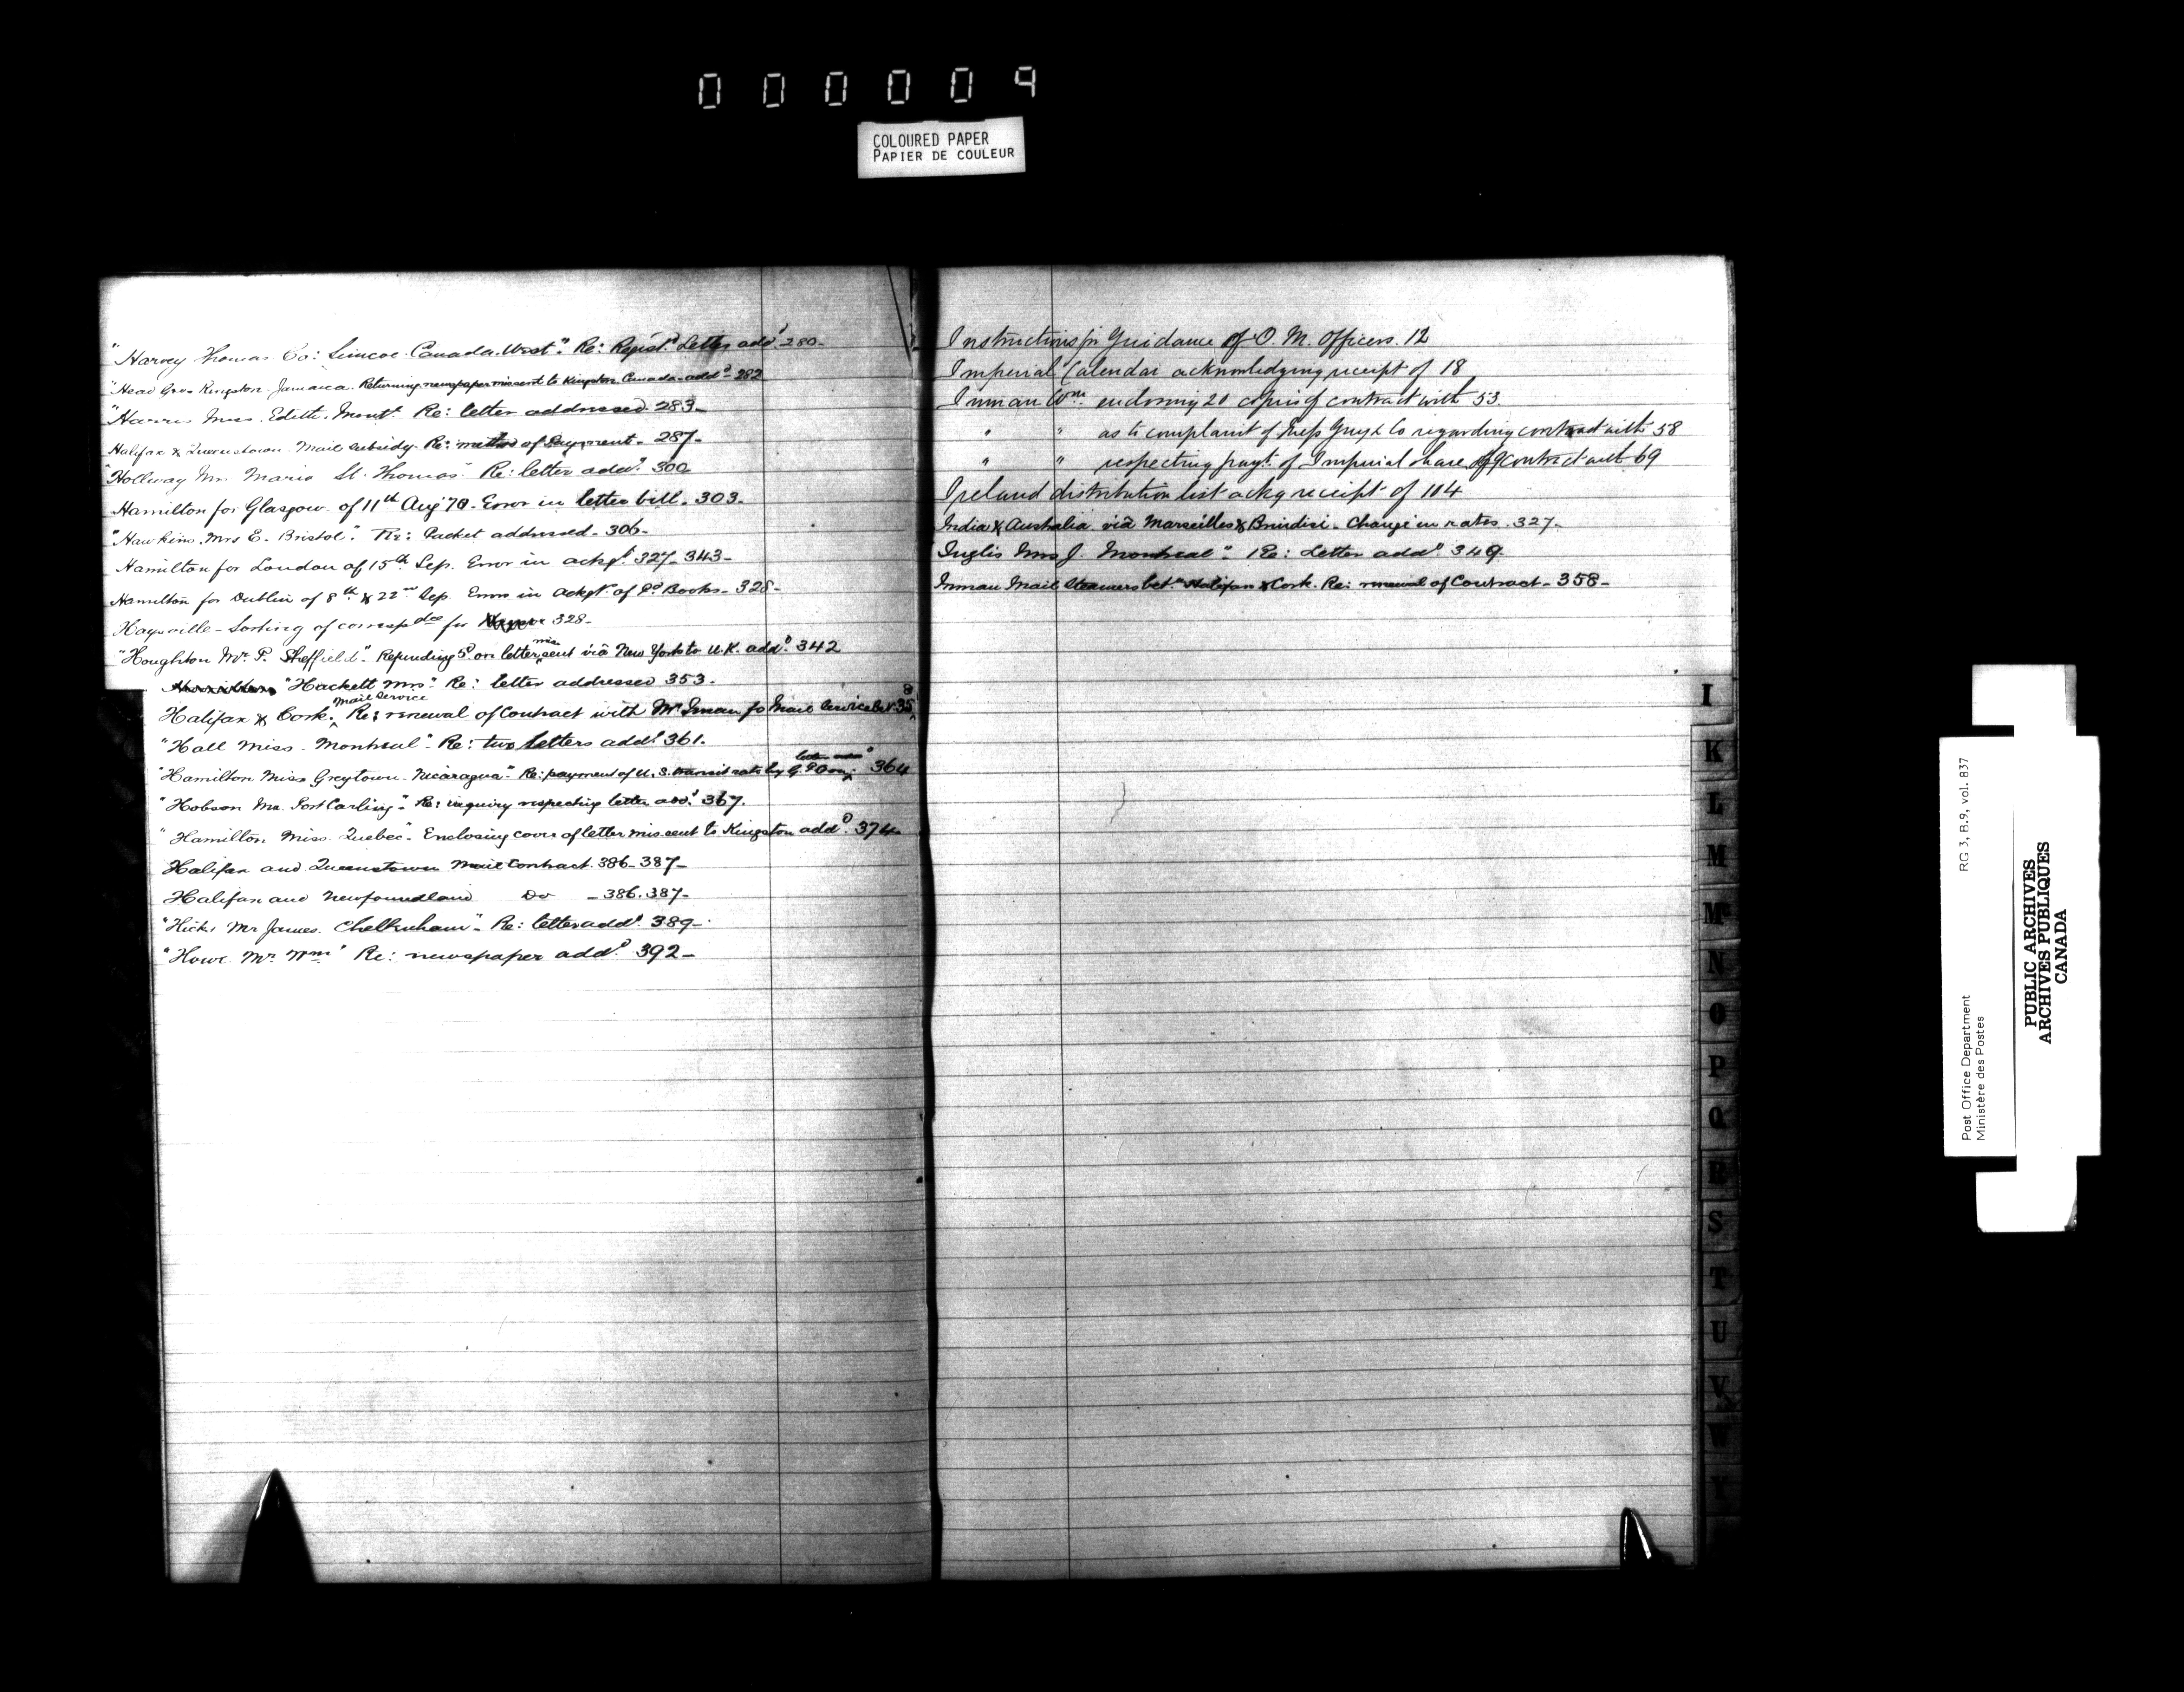 000009
COLOURED PAPER
PAPIER DE COULEUR
"Harvey Thomas Co: Simcoe Canada West". Re: Regist.d Letter add.d 280-
"Head Kingston Jamaica. Returning newspaper missent to Kingston Canada add.d 282
"Harris Miss Edith, Mont.l Re: letter addressed 283-
Halifax & Queenstown Mail subsidy. Re: method of Payment - 287-
"Hollway Mr. Maria St. Thomas" Re: letter add.d 300
Hamilton for Glasgow of 11th Aug 70. Error in letter bill. 303.
"Hawkins Mrs E. Bristol". Re: Packet addressed - 306-
Hamilton for London of 15th Sep. Error in ackg.t 327-343-
Hamilton for Dublin of 8th & 22nd Sep. Errors in ackgt. of Books - 328-
Haysville - Sorting of corresp.dce for 328-
"Houghton Mr. P. Sheffield" - Refunding 5d. on letter mis sent viâ New York to U.K. add.d 342
"Hackett Mrs" Re: letter addressed 353.
Halifax & Cork. Mail Service Re: renewal of Contract with Mr Inman for Mail Service bet. 358
"Hall Miss. Montreal" - Re: two letters add.d 361.
"Hamilton Miss Greytown. Nicaragua" - Re: payment of U.S. transit rate by letter add.d 364
"Hobson Mr. Port Carling" - Re: inquiry respecting letter add.d 367.
"Hamilton Miss Quebec" - Enclosing cover of letter missent to Kingston add.d 374
Halifax and Queenstown Mail Contract. 386-387-
Halifax and Newfoundland Do - 386.387-
"Hicks Mr James. Cheltenham" - Re: letter add.d 389-
"Howe Mr. Wm" Re: newspaper add.d 392-
Instructions for Guidance of O. M. Officers. 12
Imperial Calendar acknowledging receipt of 18
Inman Wm. enclosing 20 copies of contract with 53.
" " as to complaint of Mess Guy & Co regarding contract with 58
" " respecting payt. of Imperial share of contract with 69
Ireland distribution list ackg receipt of 104
India & Australia viâ Marseilles & Brindisi - Change in rates. 327-
Inglis Mrs J. Montreal". Re: Letter add.d 349.
Inman Mail Steamers bet.n Halifax & Cork. Re: renewal of Contract - 358-
I
K
L
M
Mc
N
O
P
Q
R
S
T
U
V
W
Y
Post Office Department
Ministère des Postes
RG 3, B.9, vol. 837
PUBLIC ARCHIVES
ARCHIVES PUBLIQUES
CANADA